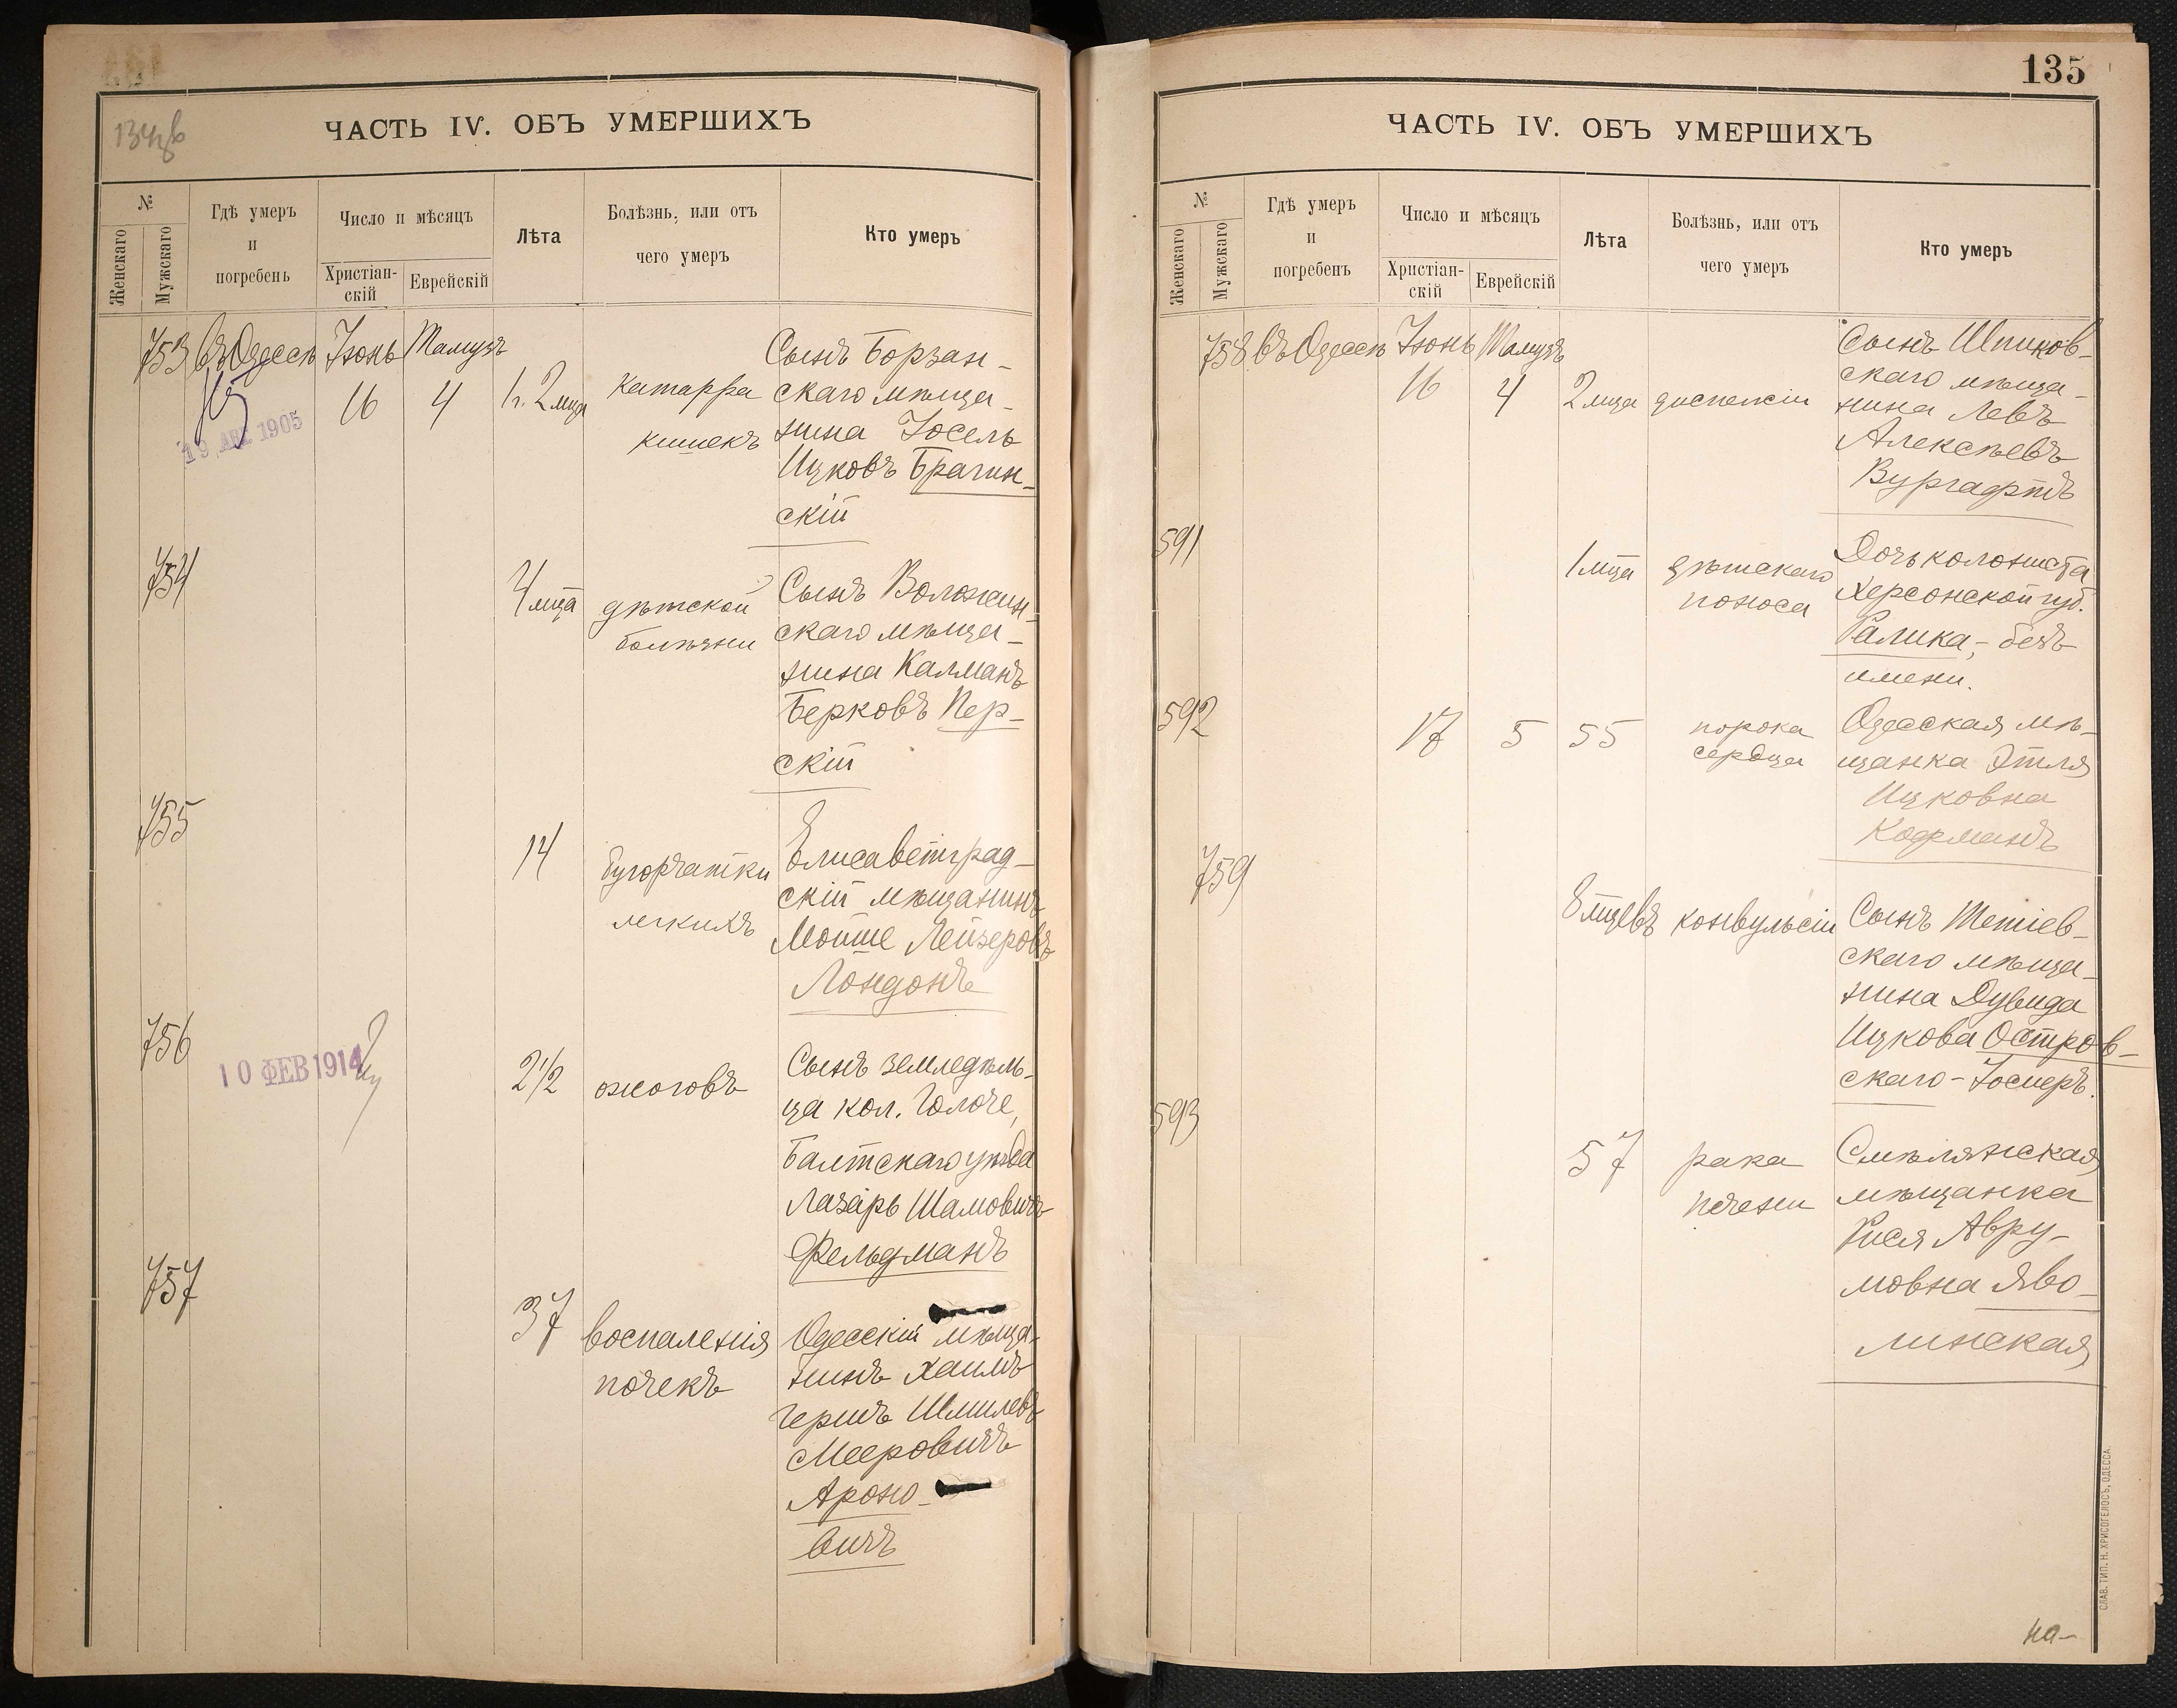 134об
ЧАСТЬ IV. ОБЪ УМЕРШИХЪ
№
Женскаго
Мужскаго
Гдѣ умеръ
и
погребенъ
Число и мѣсяцъ
Христіан-
скій
Еврейскій
Лѣта
Болѣзнь, или отъ
чего умеръ
Кто умеръ
753 въ Одессѣ Іюнь Тамузъ
16 4 1 г. 2 мца
катарра
кишекъ
Сынъ Борзан-
скаго мѣща-
нина Іосель
Ицковъ Брагин-
скій
19 АВГ 1905
754
4 мца
дѣтской
болѣзни
Сынъ Воложин-
скаго мѣща-
нина Калманъ
Берковъ Пер-
скій
755
14
бугорчатки
легкихъ
Елисаветград-
скій мѣщанинъ
Мойше Лейзеровъ
Лондонъ
756
10 ФЕВ 1914
2 1/2 ожоговъ
Сынъ земледѣль-
ца кол. Голоче,
Балтскаго уѣзда
Лазарь Шамовичъ
Фельдманъ
757
37
воспаленія
почекъ
Одесскій мѣща-
нинъ Хаимъ
Гершъ Шмилевъ
Мееровичъ
Ароно-
вичъ
135
ЧАСТЬ IV. ОБЪ УМЕРШИХЪ
№
Женскаго
Мужскаго
Гдѣ умеръ
и
погребенъ
Число и мѣсяцъ
Христіан-
скій
Еврейскій
Лѣта
Болѣзнь, или отъ
чего умеръ
Кто умеръ
758 въ Одессѣ Іюнь Тамузъ
16 4 2 мца диспепсіи
Сынъ Шпиков-
скаго мѣща-
нина Левъ
Алексѣевъ
Вургафтъ
591
1 мца
дѣтскаго
поноса
Дочь колониста
Херсонской губ.
Ралика, - безъ
имени.
592
17 5 55
порока
сердца
Одесская мѣ-
щанка Этля
Ицковна
Кофманъ
759
8 мцевъ конвульсіи
Сынъ Тетіев-
скаго мѣща-
нина Дувида
Ицкова Остров-
скаго - Іосперъ.
593
57
рака
печени
Смѣлянская
мѣщанка
Рися Авру-
мовна Яво-
линская
СЛАВ. ТИП. Н. ХРИСОГЕЛОСЪ, ОДЕССА.
на-